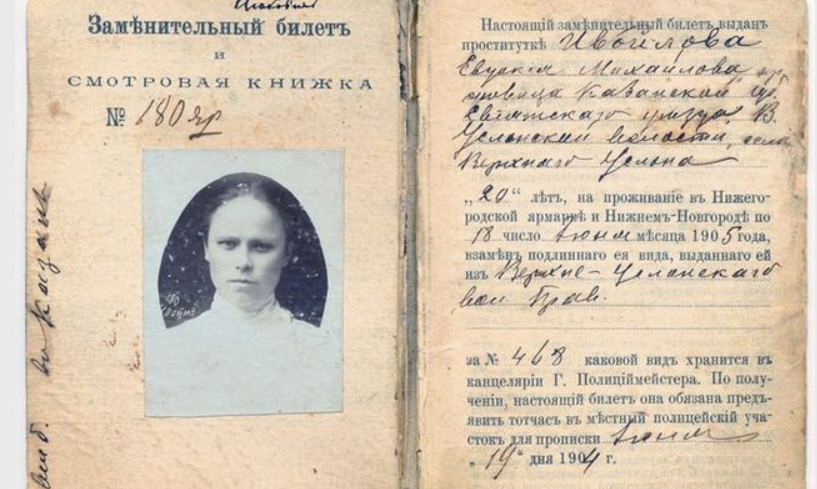 Замѣнительный билетъ
и
СМОТРОВАЯ КНИЖКА
№ 180 яр
въ Казани
Настоящій замѣнительный билетъ выданъ
проституткѣ Ивойлова
Евдокія Михайлова, кр
Казанской губ.
Свіяжскаго уѣзда В.
Услонской волости, села
Верхняго Услона
„20“ лѣтъ, на проживаніе въ Нижего-
родской ярмаркѣ и Нижнемъ-Новгородѣ по
18 число Іюня мѣсяца 1905 года,
взамѣнъ подлиннаго ея вида, выданнаго ей
изъ Верхне-Услонскаго
вол. Прав.
за № 468 каковой видъ хранится въ
канцеляріи Г. Полиціймейстера. По полу-
ченіи, настоящій билетъ она обязана предъ-
явить тотчасъ въ мѣстный полицейскій уча-
стокъ для прописки Іюня
„19“ дня 1904 г.